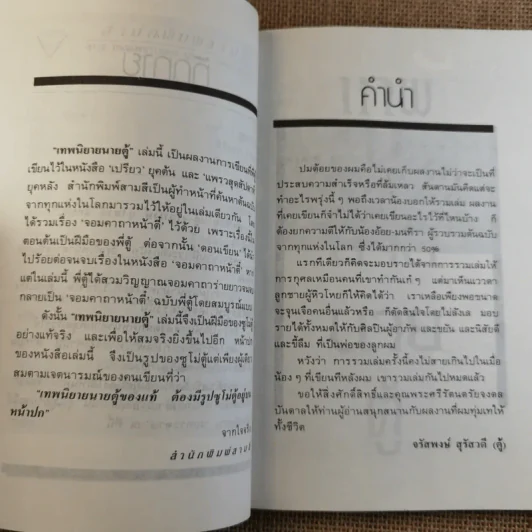 "เทพนิยายนายตู้" เล่มนี้ เป็นผลงานการเขียนที่
เขียนไว้ในหนังสือ 'เปรียว' ยุคต้น และ 'แพรวสุดสัปดาห์
ยุคหลัง สำนักพิมพ์สามสีเป็นผู้ทำหน้าที่ค้นหาต้นฉบับ
จากทุกแห่งในโลกมารวมไว้ให้อยู่ในเล่มเดียวกัน โดย
ได้รวมเรื่อง 'จอมคาถาหน้าตี๋' ไว้ด้วย เพราะเรื่องนี้
ตอนต้นเป็นฝีมือของพี่ตู้ ต่อจากนั้น 'คอนเขียน' ได้
ไปร้อยต่อจนจบเรื่องในหนังสือ 'จอมคาถาหน้าตี๋'
แต่ในเล่มนี้ พี่ตู้ได้สวมวิญญาณจอมคาถาร่ายยาวจน
กลายเป็น 'จอมคาถาหน้าตี๋' ฉบับพี่ตู้โดยสมบูรณ์แบบ
ดังนั้น "เทพนิยายนายตู้" เล่มนี้จึงเป็นฝีมือของซูโม่ตู้
อย่างแท้จริง และเพื่อให้สมจริงยิ่งขึ้นไปอีก หน้าปก
ของหนังสือเล่มนี้ จึงเป็นรูปของซูโม่ตู้แต่เพียงผู้เดียว
สมตามเจตนารมณ์ของคนเขียนที่ว่า
"เทพนิยายนายตู้ของแท้ ต้องมีรูปซูโม่ตู้อยู่บน
หน้าปก"
จากใจจริง
สำนักพิมพ์สามสี
คำนำ
ปมด้อยของผมคือไม่เคยเก็บผลงานไม่ว่าจะเป็นที่
ประสบความสำเร็จหรือที่ล้มเหลว สันดานมันคิดแต่จะ
ทำอะไรพรุ่งนี้ ๆ พอถึงเวลาน้องบอกให้รวมเล่ม ผลงาน
ที่เคยเขียนก็จำไม่ได้ว่าเคยเขียนอะไรไว้ที่ไหนบ้าง ก็
ต้องยกความดีให้กับน้องอ้อย-มนทิรา ผู้รวบรวมต้นฉบับ
จากทุกแห่งในโลก ซึ่งได้มากกว่า 50%
แรกทีเดียวก็คิดจะมอบรายได้จากการรวมเล่มให้
การกุศลเหมือนคนที่เขาทำกันเก๋ ๆ แต่มาเห็นแววตา
ลูกชายผู้หิวโหยก็ให้คิดได้ว่า เราเหลือเพียงพอขนาด
จะจุนเจือคนอื่นแล้วหรือ ก็ตัดสินใจโดยไม่ลังเล มอบ
รายได้ทั้งหมดให้กับศิลปินผู้อาภัพ และขยัน และนิสัยดี
และขี้ลืม ที่เป็นพ่อของลูกผม
หวังว่า การรวมเล่มครั้งนี้คงไม่สายเกินไปในเมื่อ
น้อง ๆ ที่เขียนทีหลังผม เขารวมเล่มกันไปหมดแล้ว
ขอให้สิ่งศักดิ์สิทธิ์และคุณพระศรีรัตนตรัยจงดล
บันดาลให้ท่านผู้อ่านสนุกสนานกับผลงานที่ผมทุ่มเทให้
ทั้งชีวิต
จรัสพงษ์ สุรัสวดี (ตู้)